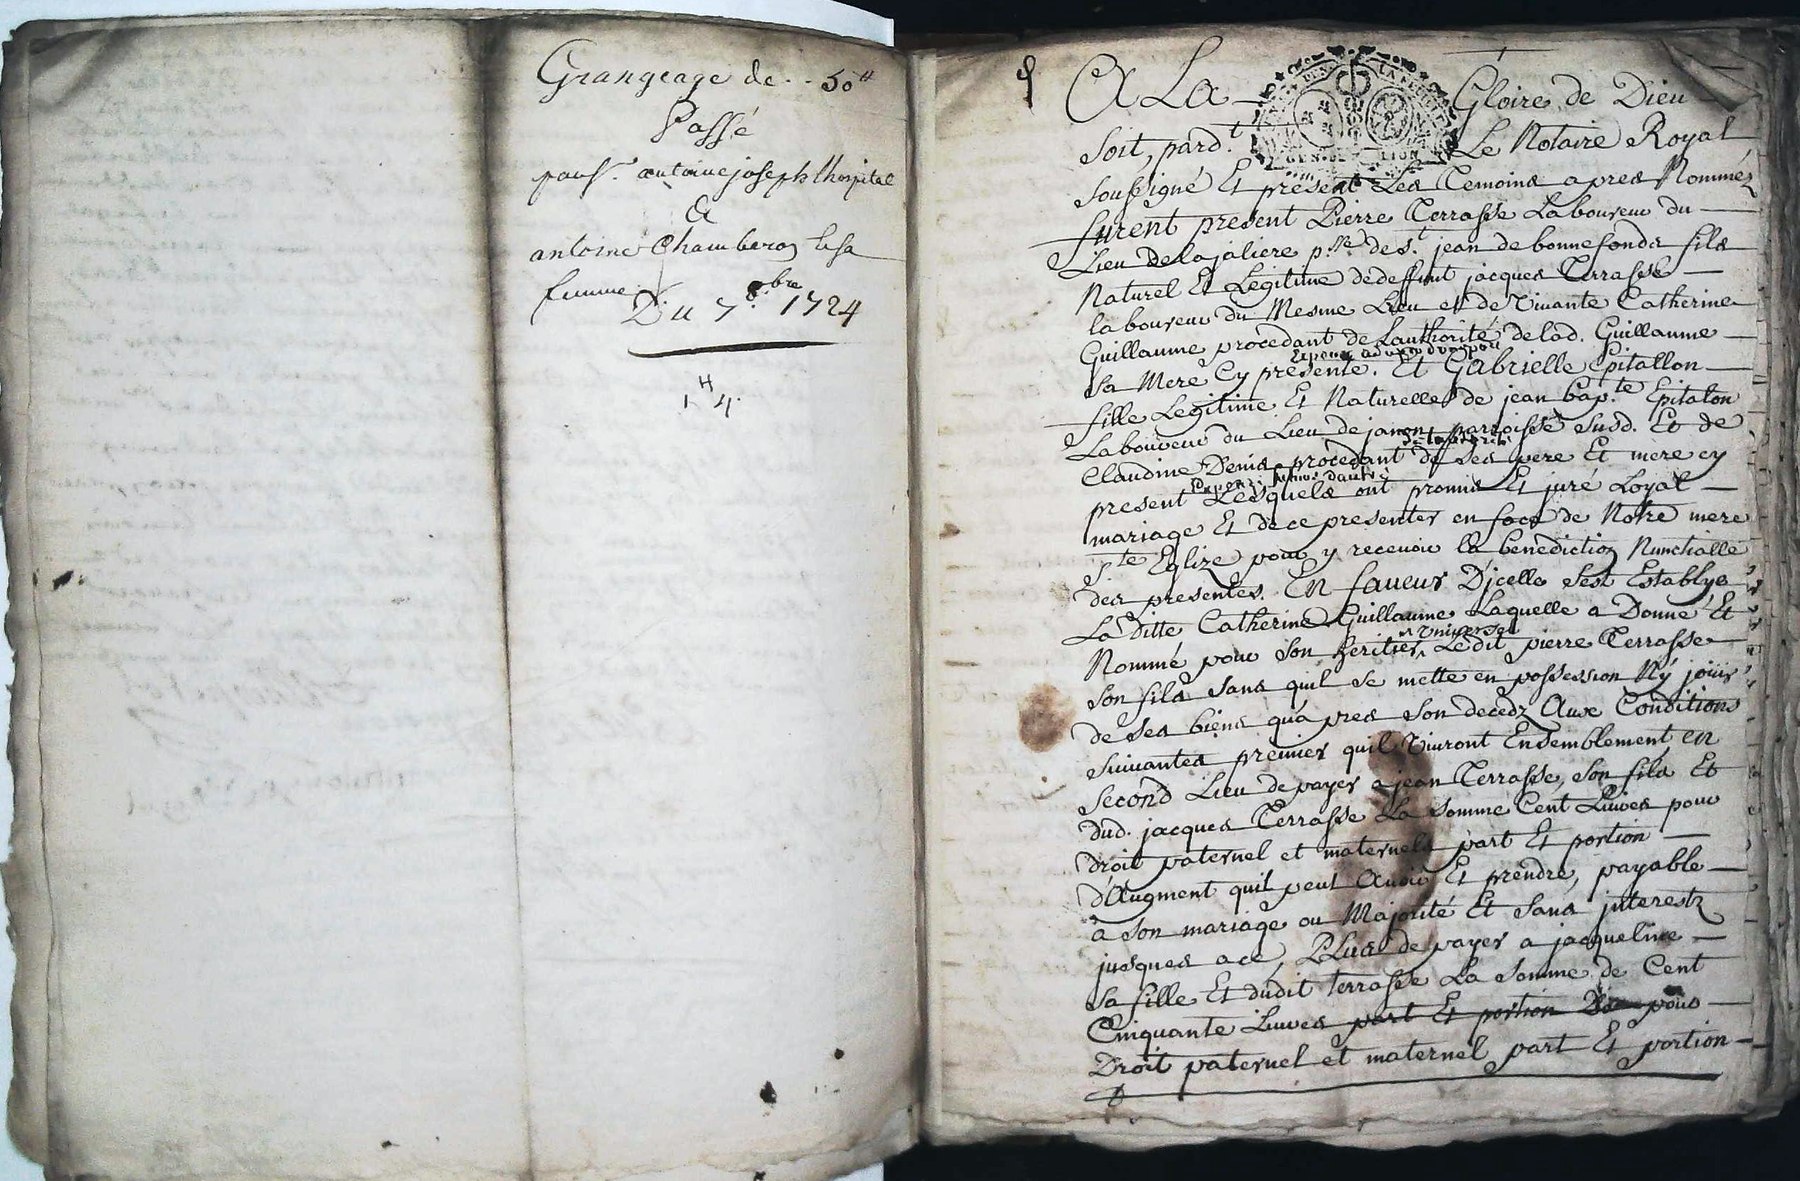 Grangeage de .. 50 tt
Passé
par Sr. antoine joseph lhospital
Et
antoine Chamberon
femme
Du 7e. 8bre 1724
1 tt 4
A La Gloire de Dieu
Soit, pard.t Le Notaire Royal
Soussigné Et présent Les Temoins apres Nommés
furent present Pierre Terrasse Laboureur du
Lieu de lajaliere p.sse de s.t jean de bonnefonds fils
Naturel Et Legitime dedeffunt jacques Terrasse
laboureur du Mesme Lieu et de Vivante Catherine
Guillaume procedant de Lauthorité de lad. Guillaume
Sa Mere Cy presente. Et Gabrielle Epitallon
fille Legitime Et Naturelle de jean bap.te Epitalon
Laboureur du Lieu de janon parroisse susd. Et de
Claudine Denis procedant de lauthorité de Ses pere Et mere cy
present Lesquels ont promis Et juré Loyal
mariage Et de ce presenter en face de Notre mere
S.te Eglize pour y recevoir la benediction Nunctialle
des presentes. En faveur Djcelle Sest Establye
La Ditte Catherine Guillaume Laquelle a Donné Et
Nommé pour Son heritier universel Ledit pierre Terrasse
Son fils Sans quil se mette en possession Ny jouir
de Ses biens qua pres Son decedz Aux Conditions
Suivantes premier quil Vivront Ensemblement en
Second Lieu de payer a jean Terrasse, Son fils Et
dud. jacques Terrasse La Somme Cent Livres pour
droit paternel et maternels part Et portion
dAugment quil peut Avoir Et prendre, payable
à Son mariage ou Majorité Et Sans jnterestz
jusques a ce, PLus de payer a jacqueline
Sa fille Et dudit terrasse La Somme de Cent
Cinquante Livres part Et portion pour
Droit paternel et maternel part Et portion